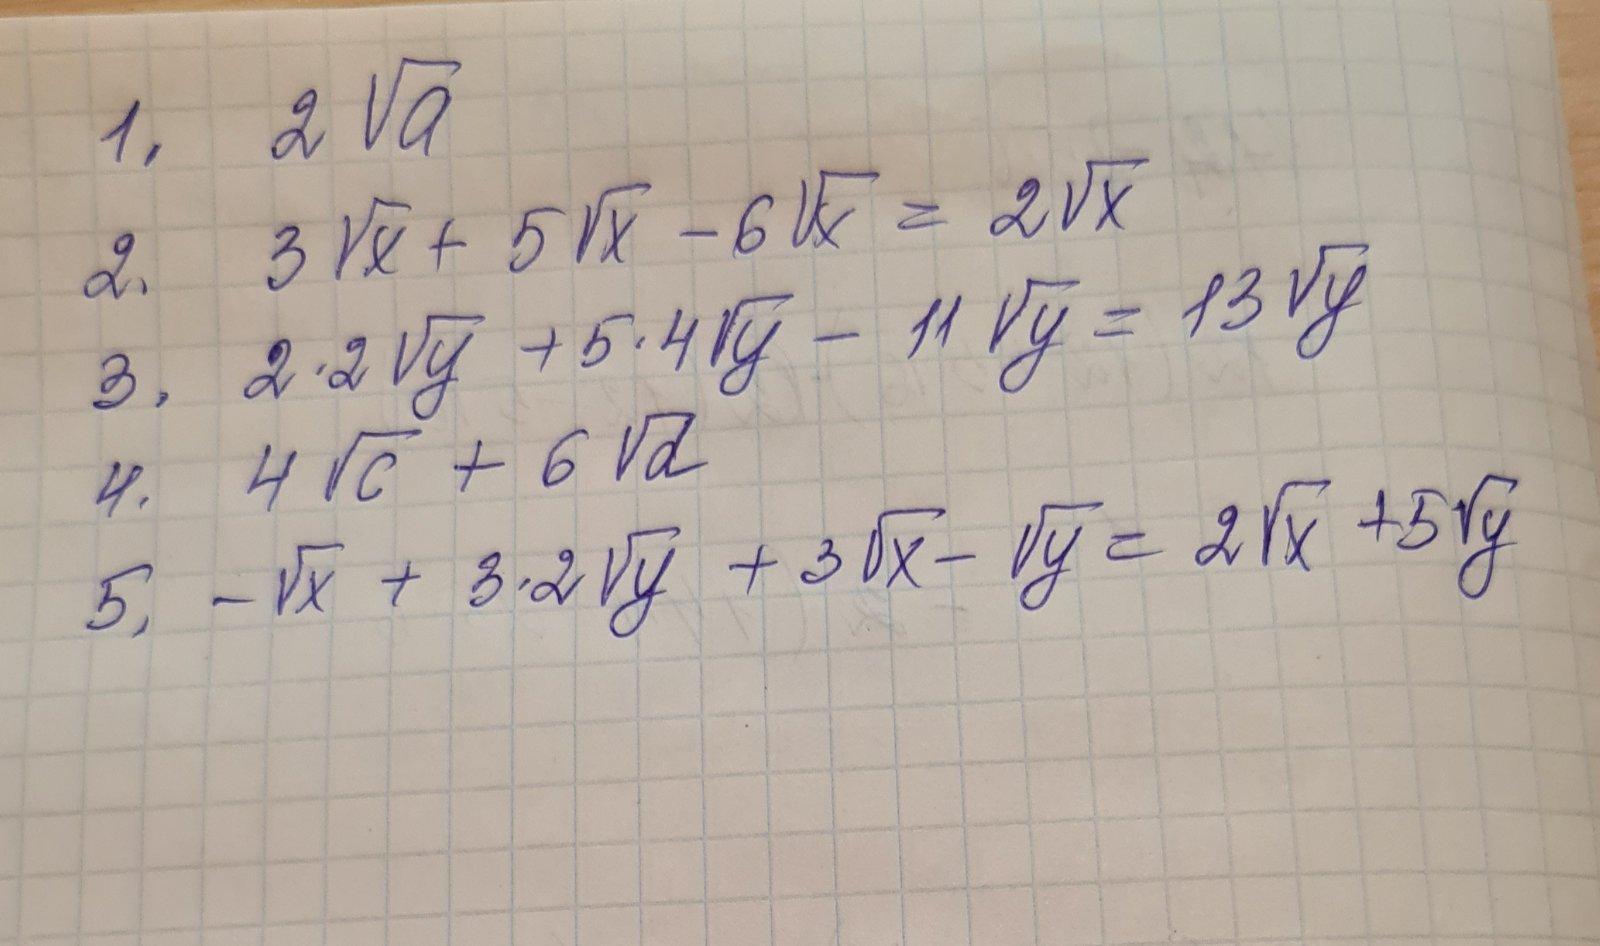 1. 2√a
2. 3√x + 5√x - 6√x = 2√x
3. 2·2√y + 5·4√y - 11√y = 13√y
4. 4√c + 6√d
5. -√x + 3·2√y + 3√x - √y = 2√x + 5√y